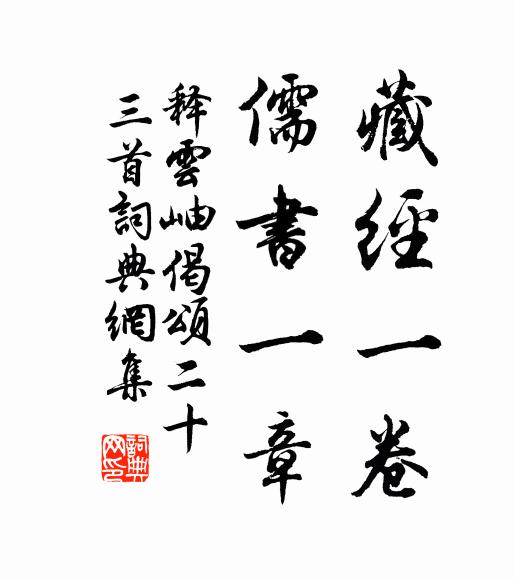 藏經一卷
儒書一章
释雲岫偈頌二十
三首詞典網集
詞典网印